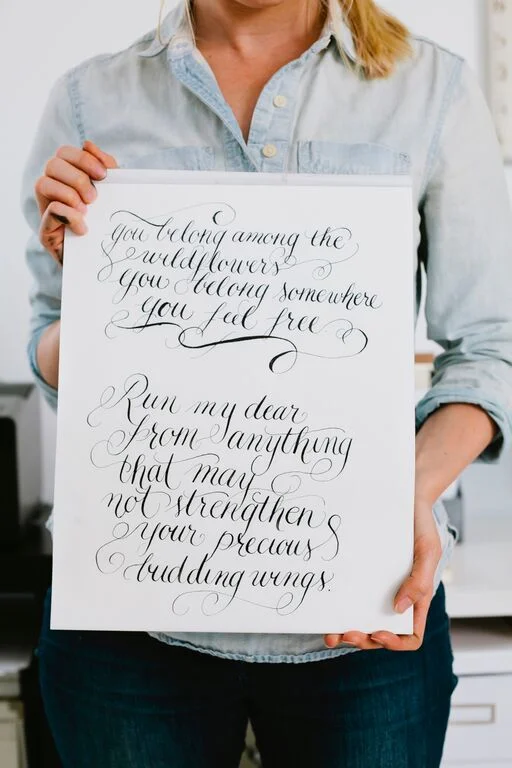 you belong among the
wildflowers
you belong somewhere
you feel free
Run my dear
from anything
that may
not strengthen
your precious
budding wings.